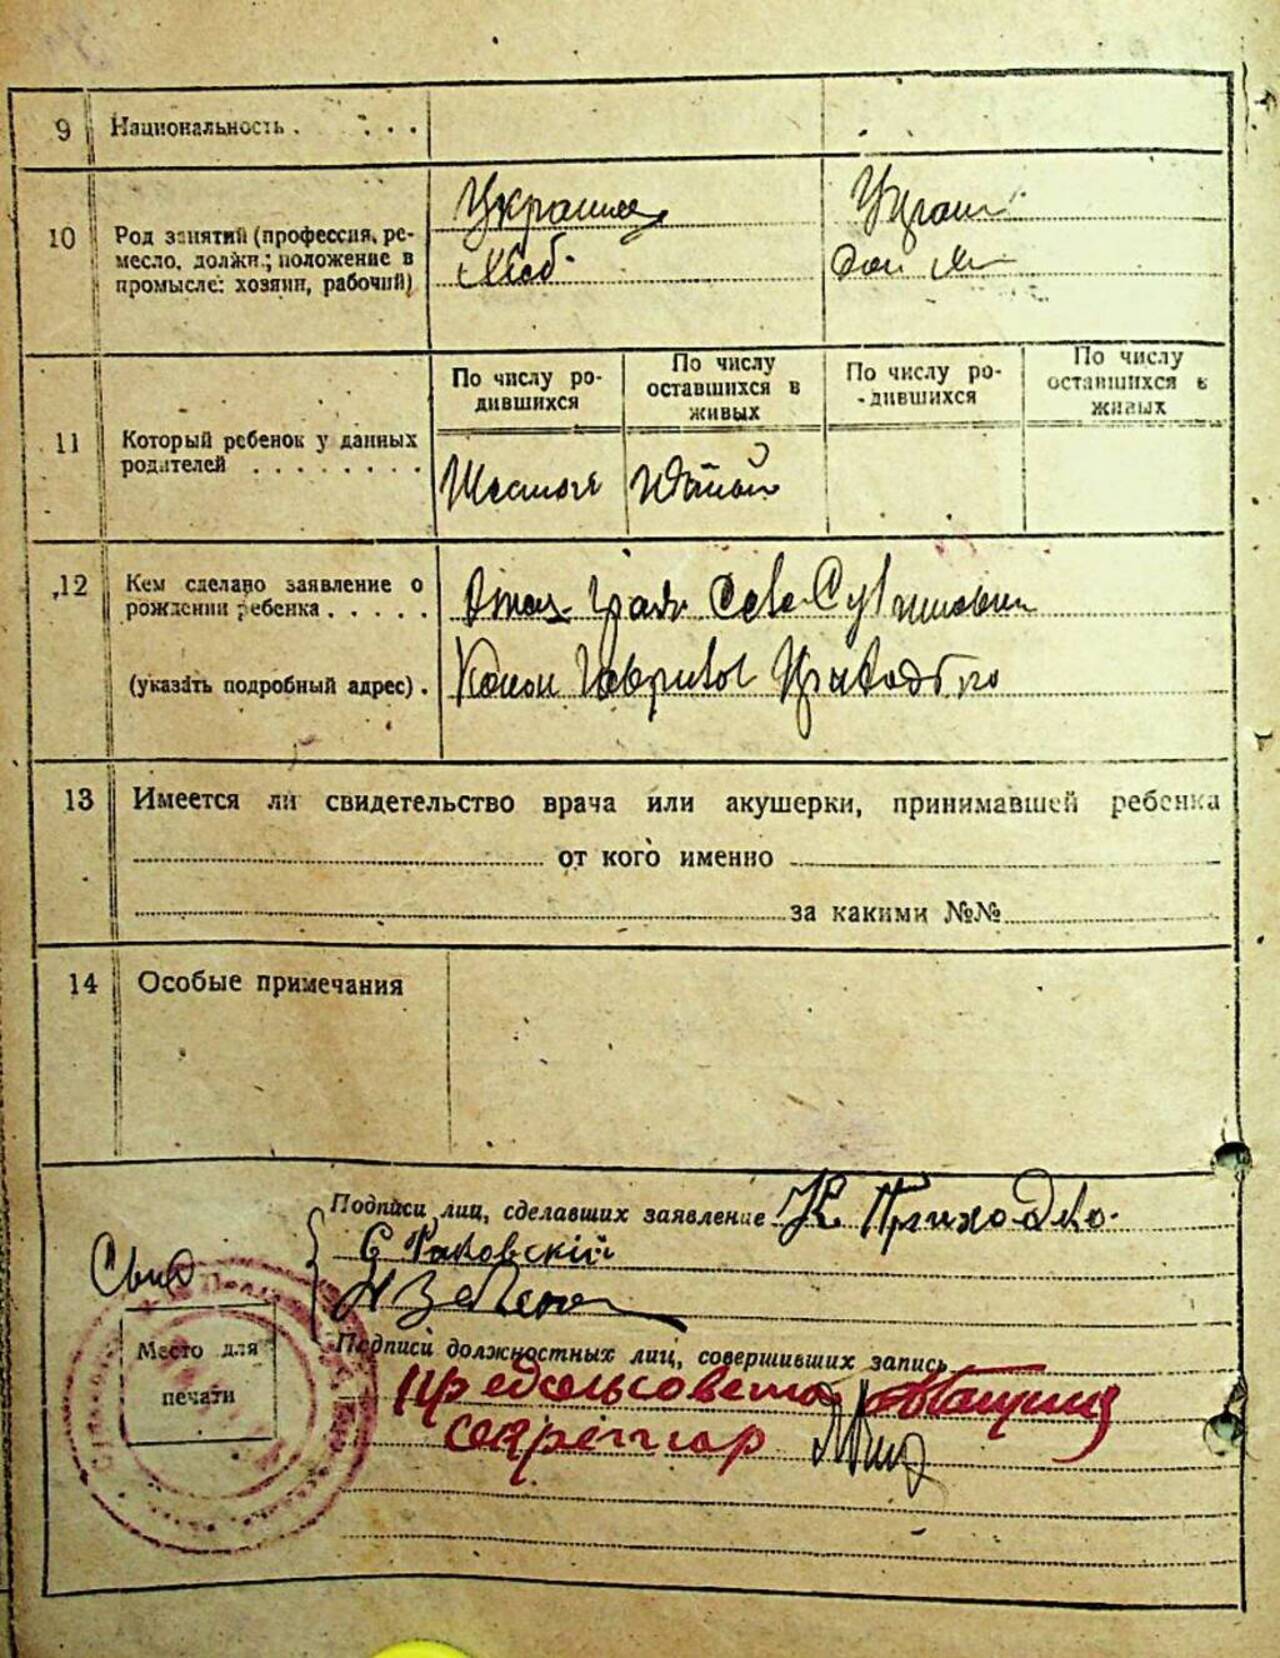 9 Национальность . . . .
10 Род занятий (профессия, ре-
месло, должн.; положение в
промысле: хозяин, рабочий)
Украинец
Хлеб
Украин
Дом
11 Который ребенок у данных
родителей . . . . . . . .
По числу ро-
дившихся
По числу
оставшихся в
живых
По числу ро-
дившихся
По числу
оставшихся в
живых
Шестой
Пятый
12 Кем сделано заявление о
рождении ребенка . . . . .
(указать подробный адрес) .
Отец
Приходько
13 Имеется ли свидетельство врача или акушерки, принимавшей ребенка
от кого именно
за какими №№
14 Особые примечания
Подписи лиц, сделавших заявление К Приходько.
Свид
С Раковскій
Место для
печати
Подписи должностных лиц, совершивших запись
Предсельсовета
Секретар